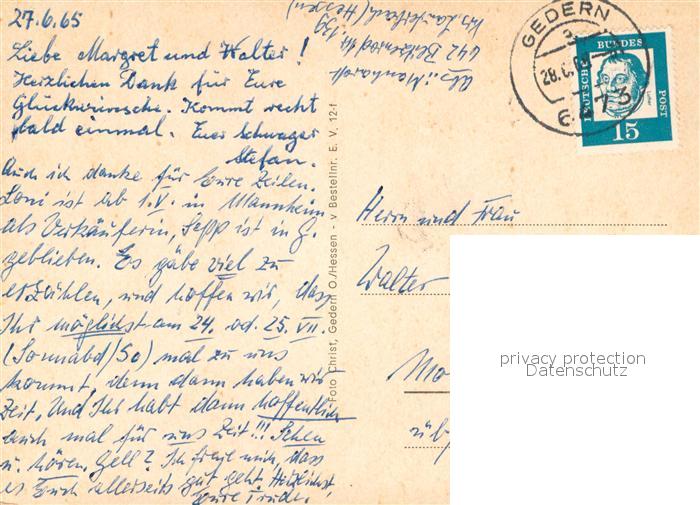 27.6.65
Liebe Margret und Walter!
Herzlichen Dank für Eure
Glückwünsche. Kommt recht
bald einmal. Euer Schwager
Stefan.
Auch ich danke für Eure Zeilen.
Loni ist ab 1.V. in Mannheim
als Verkäuferin, Sepp ist in G.
geblieben. Es gäbe viel zu
erzählen, und hoffen wir, dass
Ihr möglichst am 24. od. 25. VII.
(Sonnabd/So) mal zu uns
kommt, denn dann haben wir
Zeit. Und Ihr habt dann hoffentlich
auch mal für uns Zeit!!! Sehen
u. hören, gell? Ich freue mich, dass
es Euch allerseits gut geht. Herzlichst,
Eure Trude.
Abs.:
Foto Christ, Gedern O./Hessen - v Bestellnr. E. V. 12·f
GEDERN
28.6.
6473
DEUTSCHE
BUNDES
POST
Luther
15
Herrn und Frau
Walter
Mo
üb
privacy protection
Datenschutz